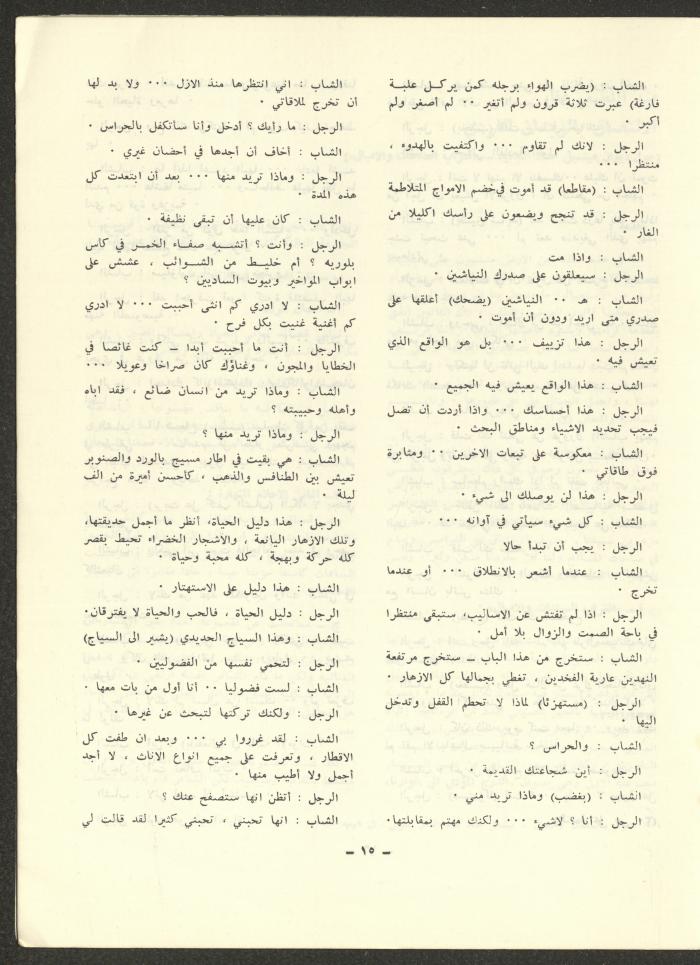 الشاب : (يضرب الهواء برجله كمن يركـل علبـة
فارغة) عبرت ثلاثة قرون ولم أتغير ٠٠ لم أصغر ولم
أكبر ٠
الرجل : لانك لم تقاوم ٠٠٠ واكتفيت بالهدوء ،
منتظرا ٠٠٠
الشاب : (مقاطعا) قد أموت في خضم الامواج المتلاطمة
الرجل : قد تنجح ويضعون على رأسك اكليلا من
الغار ٠
الشاب : واذا مت
الرجل : سيعلقون على صدرك النياشين ٠
الشاب : هـ ٠٠ النياشين (يضحك) أعلقها على
صدري متى اريد ودون أن أموت ٠
الرجل : هذا تزييف ٠٠٠ بل هو الواقع الذي
تعيش فيه ٠
الشاب : هذا الواقع يعيش فيه الجميع ٠
الرجل : هذا أحساسك ٠٠٠ واذا أردت أن تصل
فيجب تحديد الاشياء ومناطق البحث ٠
الشاب : معكوسة على تبعات الاخرين ٠٠ ومثابرة
فوق طاقاتي ٠
الرجل : هذا لن يوصلك الى شيء ٠
الشاب : كل شيء سيأتي في آوانه ٠٠٠
الرجل : يجب أن تبدأ حالا
الشاب : عندما أشعر بالانطلاق ٠٠٠ أو عندما
تخرج ٠
الرجل : اذا لم تفتش عن الاساليب، ستبقى منتظرا
في باحة الصمت والزوال بلا أمل ٠
الشاب : ستخرج من هذا الباب ــ ستخرج مرتفعة
النهدين عارية الفخدين ، تغطي بجمالها كل الازهار ٠
الرجل : (مستهزئا) لماذا لا تحطم القفل وتدخل
اليها ٠
الشاب : والحراس ؟
الرجل : أين شجاعتك القديمة ٠
الشاب : (بغضب) وماذا تريد مني ٠
الرجل : أنا ؟ لاشيء ٠٠٠ ولكنك مهتم بمقابلتها٠
الشاب : اني انتظرها منذ الازل ٠٠٠ ولا بد لها
أن تخرج لملاقاتي ٠
الرجل : ما رأيك ؟ أدخل وأنا سأتكفل بالحراس ٠
الشاب : أخاف أن أجدها في أحضان غيري ٠
الرجل : وماذا تريد منها ٠٠٠ بعد أن ابتعدت كل
هذه المدة ٠
الشاب : كان عليها أن تبقى نظيفة ٠
الرجل : وأنت ؟ أتشـبه صفـاء الخمـر في كاس
بلوريه ؟ أم خليـط من الشـوائب ، عششش على
ابواب المواخير وبيوت الساديين ؟
الشاب : لا ادري كم انثى أحببت ٠٠٠ لا ادري
كم أغنية غنيت بكل فرح ٠
الرجل : أنت ما أحببت أبدا ــ كنت غائصا في
الخطايا والمجون ، وغناؤك كان صراخا وعويلا ٠٠٠
الشاب : وماذا تريد من انسان ضائع ، فقد أباه
وأهله وحبيبته ؟
الرجل : وماذا تريد منها ؟
الشاب : هي بقيت في اطار مسيج بالورد والصنوبر
تعيش بين الطنافس والذهب ، كأحسن أميرة من الف
ليلة ٠
الرجل : هذا دليل الحياة، أنظر ما أجمل حديقتها،
وتلك الازهار اليانعة ، والأشجار الخضراء تحيط بقصر
كله حركة وبهجة ، كله محبة وحياة ٠
الشاب : هذا دليل على الاستهتار ٠
الرجل : دليل الحياة ، فالحب والحياة لا يفترقان٠
الشاب : وهذا السياج الحديدي (يشير الى السياج)
الرجل : لتحمي نفسها من الفضوليين ٠
الشاب : لست فضوليا ٠٠ أنا أول من بات معها ٠
الرجل : ولكنك تركتها لتبحث عن غيرها ٠
الشاب : لقد غرروا بي ٠٠٠ وبعد ان طفت كل
الاقطار ، وتعرفت على جميع انواع الاناث ، لا أجد
أجمل ولا أطيب منها ٠
الرجل : أتظن انها ستصفح عنك ؟
الشاب : انها تحبني ، تحبني كثيرا لقد قالت لي
ــ ١٥ ــ